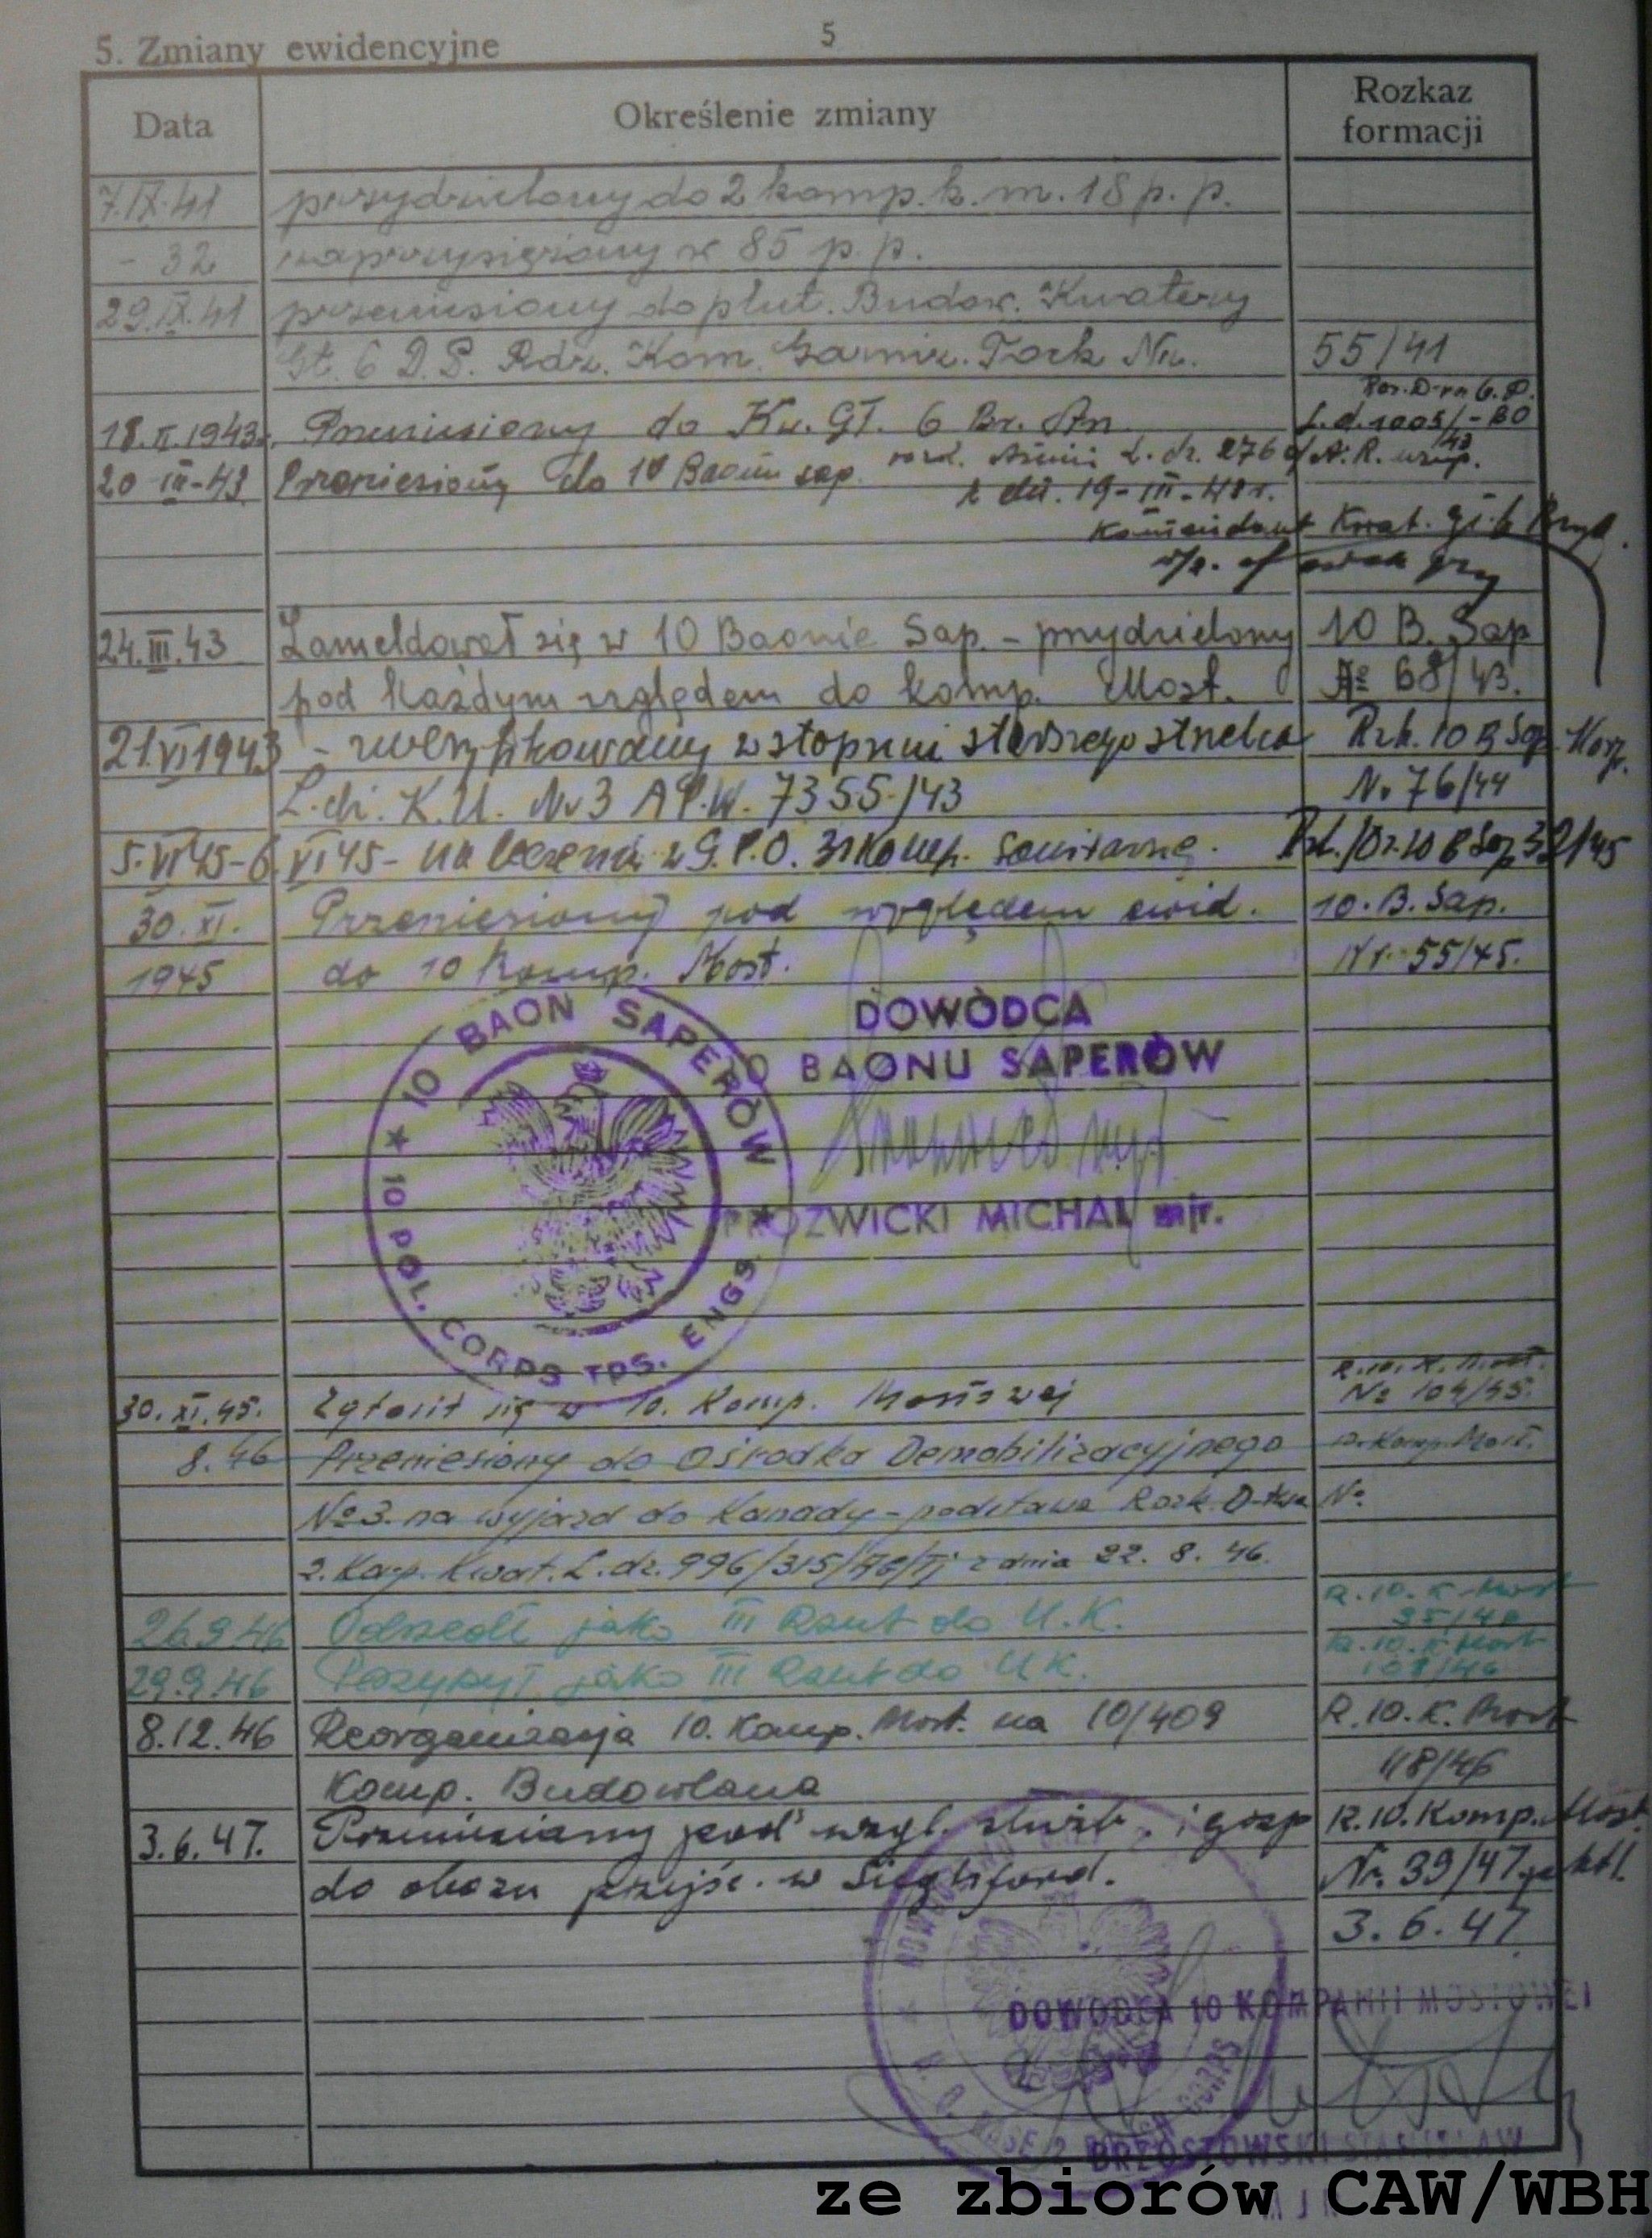 5
5. Zmiany ewidencyjne
Data Określenie zmiany Rozkaz formacji
7.IX.41 przydzielony do 2 komp. k. m. 18 p. p.
- 32 zaprzysiężony w 85 p. p.
29.IX.41 przeniesiony do plut. Budow. Kwatery
Gł. 6 D.P. Rdz. Kom. Garniz. Tock Nr. 55/41
18.II.1943r. Przeniesiony do Kw. Gł. 6 Br. L.d. 1005/-BO
20-III-43 Przeniesiony do 10 Baonu sap. rozk. Armii L. dz. 276
z dn. 19-III-43r.
Komendant Kwat. gł. 6 Bryg.
24.III.43 Zameldował się w 10 Baonie Sap. - przydzielony 10 B. Sap
pod każdym względem do komp. Most. № 68/43.
21.VI 1943 - zweryfikowany w stopniu starszego strzelca Rzk. 10 B Sap.
L.dz. K.U. Nr 3 A P.W. 7355/43 Nr 76/44
5.VI 45-6.VI 45 - na leczeniu w G.P.O. 31 Komp. Sanitarnej. 10 B Sap 32/45
30.XI. Przeniesiony pod względem ewid. 10. B. Sap.
1945 do 10 Komp. Most. Nr. 55/45.
10 BAON SAPERÓW
10 POL. CORPS TPS. ENGS.
DOWÓDCA
BAONU SAPERÓW
PROZWICKI MICHAŁ mjr.
R. 10. K. Most.
30.XI.45. Zgłosił się w 10. Komp. Mostowej № 104/45.
8.46 Przeniesiony do Ośrodka Demobilizacyjnego 10. Komp. Most.
№ 3. na wyjazd do Kanady - podstawa Rozk. D-twa №
2. Korp. Kwat. L.dz. 996/315/46/Tj z dnia 22. 8. 46.
26.9.46 Odszedł jako III Rzut do U.K. R. 10. K. Most
29.9.46 Przybył jako III Rzut do U.K. R. 10. K. Most
8.12.46 Reorganizacja 10. Komp. Most. na 10/409 R. 10. K. Most
Komp. Budowlana 118/46
3.6.47. Przeniesiony pod wzgl. służb. i gosp R. 10. Komp. Most.
do obozu przejśc. w Seighford. Nr. 39/47
3.6.47
DOWÓDCA 10 KOMPANII MOSTOWEJ
BRZOSTOWSKI STANISŁAW
ze zbiorów CAW/WBH